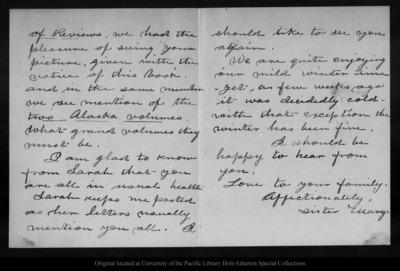 of Reviews, we had the
pleasure of seeing your
picture, given with the
notice of this book.
and in the same number
we see mention of the
two Alaska volumes
What grand volumes they
must be.
I am glad to know
from Sarah that you
are all in usual health
Sarah keeps me posted
as her letters usually
mention you all. I
should like to see you
again.
We are quite enjoying
our mild winter time
yet, a few weeks ago
it was decidedly cold-
with that exception the
winter has been fine.
I should be
happy to hear from
you.
Love to your family.
Affectionately,
Sister Mary.
Original located at University of the Pacific Library Holt-Atherton Special Collections